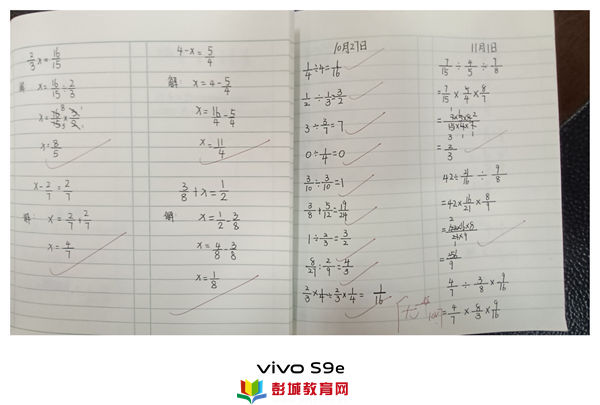 2/3 x = 16/15
解: x = 16/15 ÷ 2/3
x = 8/5
x - 2/7 = 2/7
解: x = 2/7 + 2/7
x = 4/7
4 - x = 5/4
解: x = 4 - 5/4
x = 16/4 - 5/4
x = 11/4
3/8 + x = 1/2
解: x = 1/2 - 3/8
x = 4/8 - 3/8
x = 1/8
10月27日
1/4 ÷ 4 = 1/16
1/2 ÷ 1/3 = 3/2
3 ÷ 3/7 = 7
0 ÷ 1/4 = 0
3/10 ÷ 3/10 = 1
3/8 + 5/12 = 19/24
1 ÷ 2/3 = 3/2
8/27 ÷ 2/9 = 4/3
2/3 × 1/4 ÷ 2/3 × 1/4 = 1/16
11月1日
7/15 ÷ 4/5 ÷ 7/8
= 7/15 × 5/4 × 8/7
= 2/3
42 ÷ 21/16 ÷ 9/8
= 42 × 16/21 × 8/9
= 256/9
4/7 ÷ 3/8 × 9/16
= 4/7 × 8/3 × 9/16
vivo S9e
彭城教育网